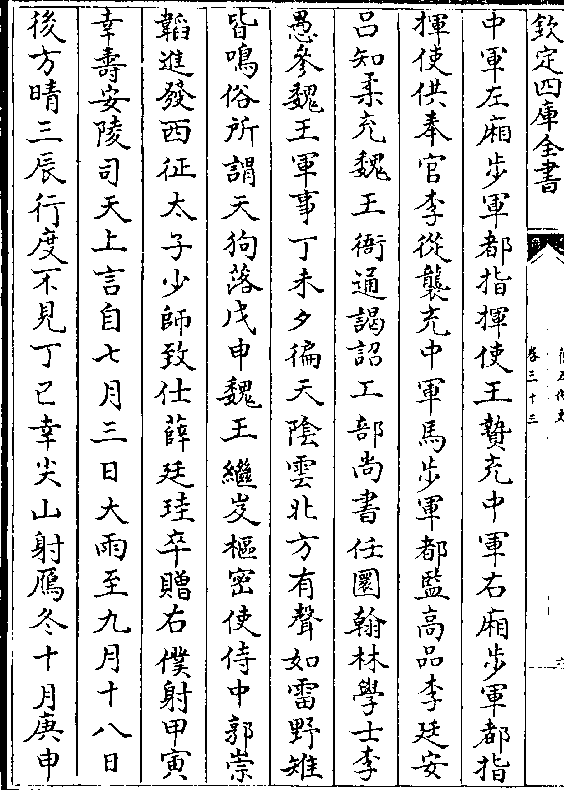 欽定四庫全書
卷三十三
中軍左廂步軍都指揮使王贄充中軍右廂步軍都指
揮使供奉官李從襲充中軍馬步軍都監高品李廷安
吕知柔充魏王衙通謁詔工部尚書任圜翰林學士李
愚參魏王軍事丁未夕徧天陰雲北方有聲如雷野雉
皆鳴俗所謂天狗落戊申魏王繼岌樞密使侍中郭崇
韜進發西征太子少師致仕薛廷珪卒贈右僕射甲寅
幸壽安陵司天上言自七月三日大雨至九月十八日
後方晴三辰行度不見丁巳幸尖山射鴈冬十月庚申